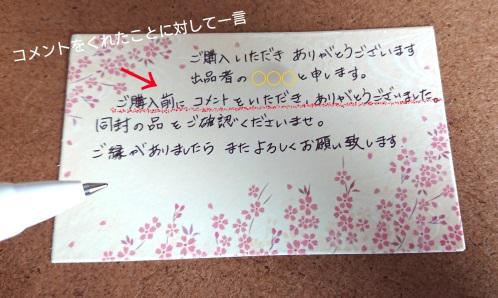 コメントをくれたことに対して一言
ご購入いただき ありがとうございます
出品者の○○○と申します。
ご購入前に コメントをいただき、ありがとうございました。
同封の品 をご確認くださいませ。
ご縁がありましたら またよろしくお願い致します